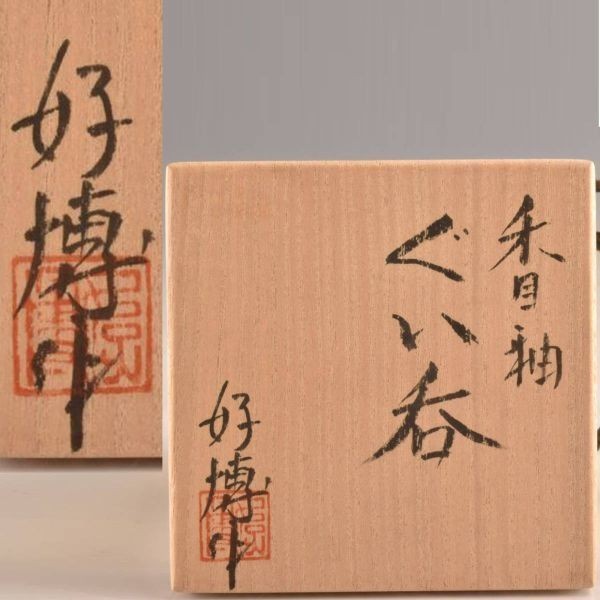 番釉
ぐい呑
好博作
好博作